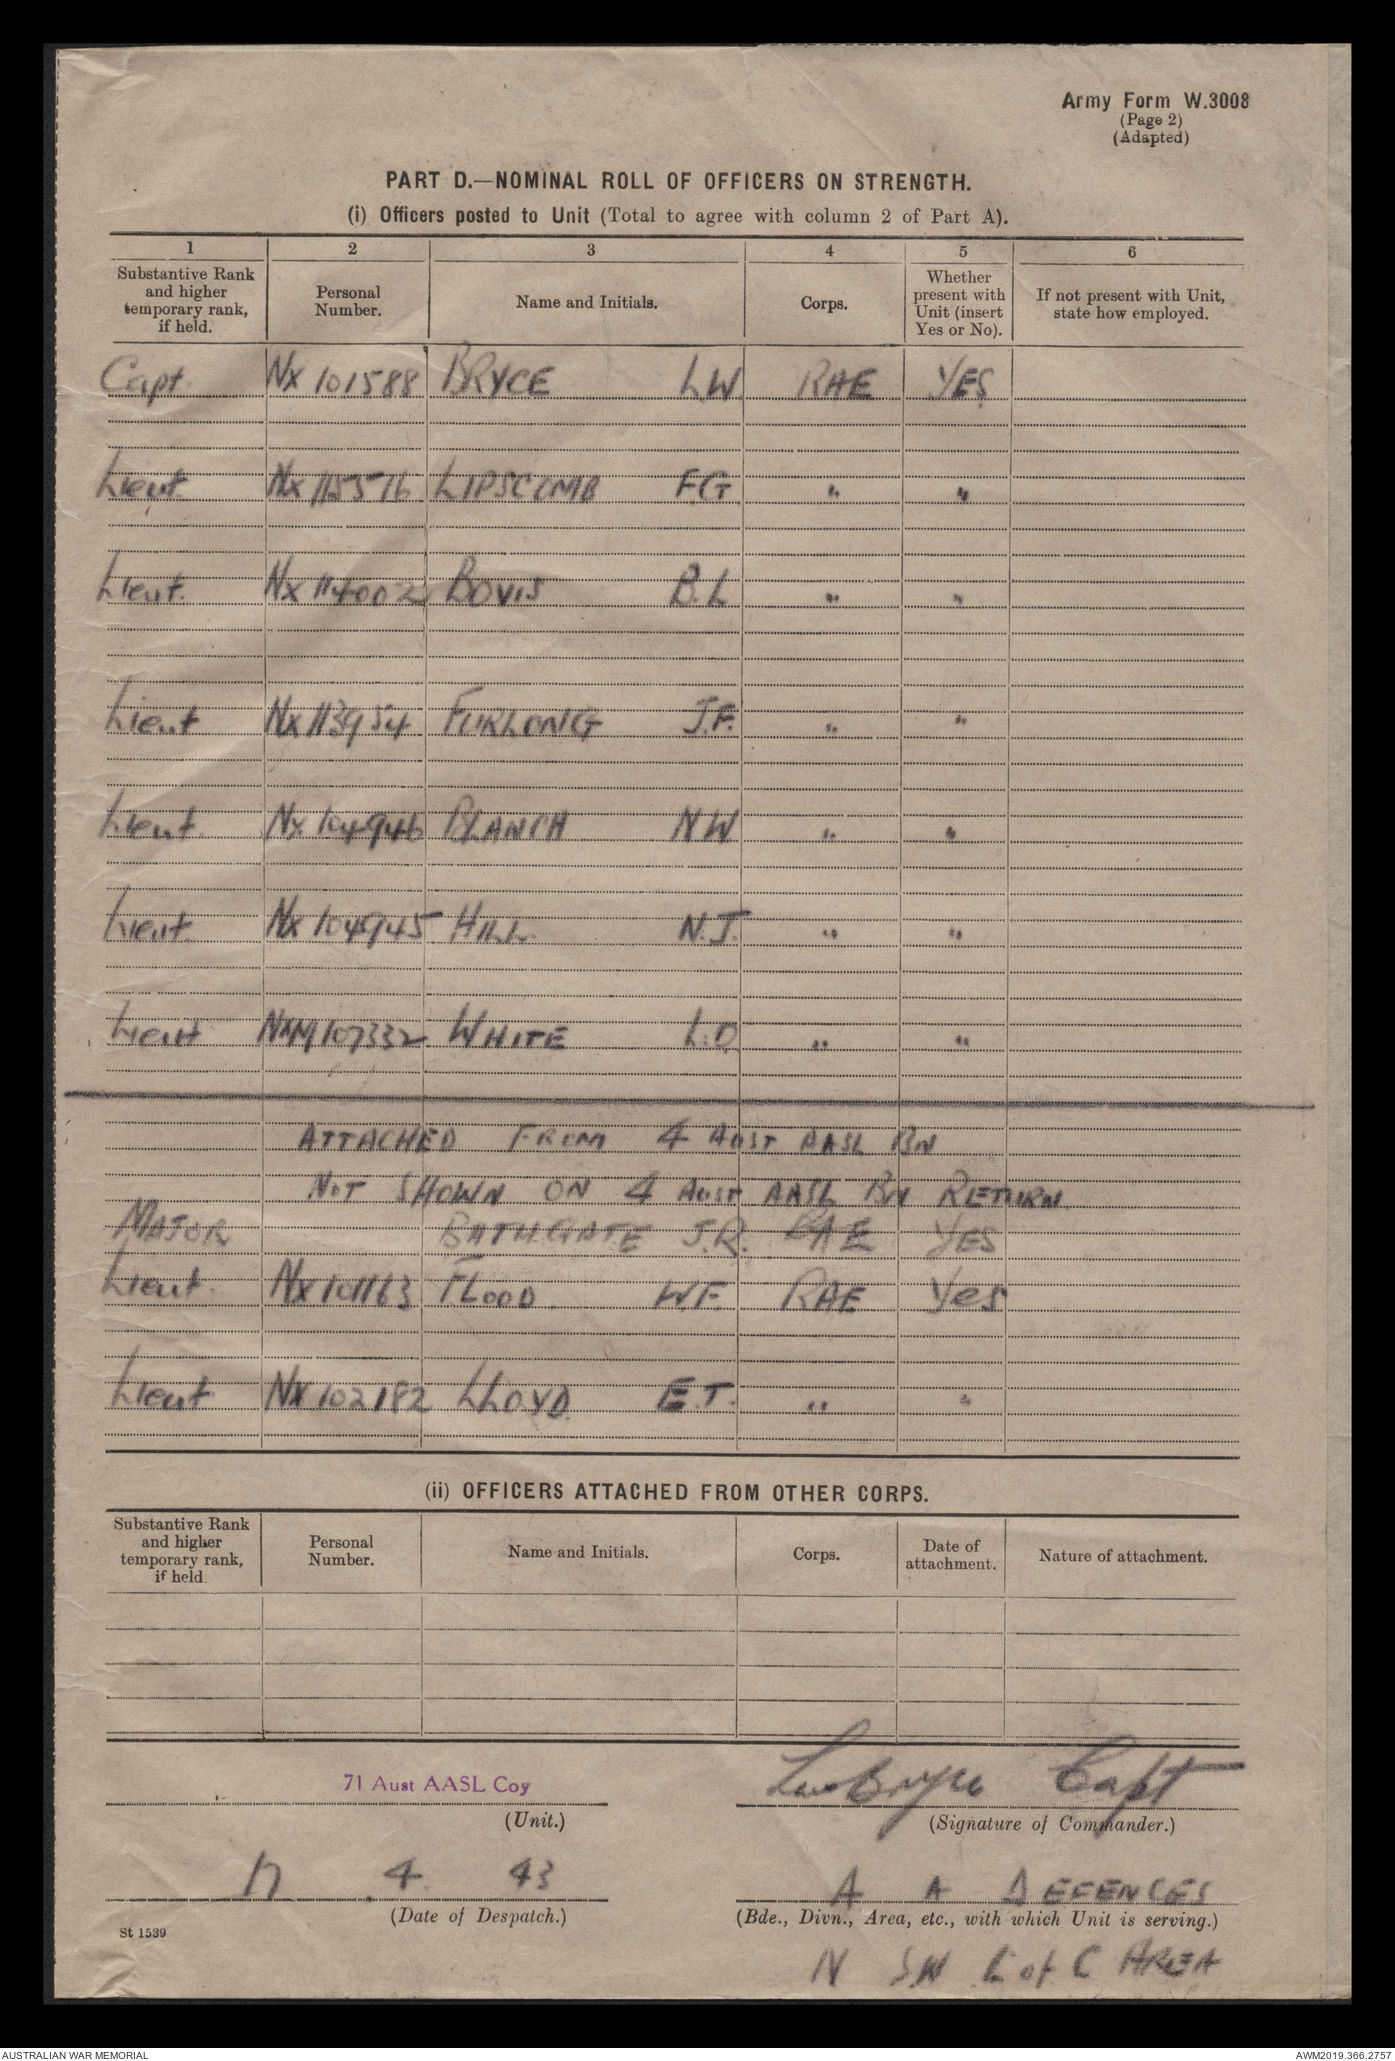 Army Form W.3008
(Page 2)
(Adapted)
PART D.—NOMINAL ROLL OF OFFICERS ON STRENGTH.
(i) Officers posted to Unit (Total to agree with column 2 of Part A).
1 2 3 4 5 6
Substantive Rank and higher temporary rank, if held. Personal Number. Name and Initials. Corps. Whether present with Unit (insert Yes or No). If not present with Unit, state how employed.
Capt. NX 101588 BRYCE L W RAE YES
Lieut. NX 115516 LIPSCOMB F.G " "
Lieut. NX 114002 BOVIS B.L " "
Lieut NX 113954 FURLONG J.F. " "
Lieut. NX 104946 BLANCH N W " "
Lieut. NX 104945 HILL. N.J. " "
Lieut NXM107332 WHITE L.D " "
ATTACHED FROM 4 AUST AASL BN
NOT SHOWN ON 4 AUST AASL BN RETURN.
MAJOR BATHGATE J.R. RAE YES
Lieut. NX 101163 FLOOD. W.F. RAE Yes
Lieut NX 102182 LLOYD. E.T. " "
(ii) OFFICERS ATTACHED FROM OTHER CORPS.
Substantive Rank and higher temporary rank, if held. Personal Number. Name and Initials. Corps. Date of attachment. Nature of attachment.
71 Aust AASL Coy LW Bryce Capt
(Unit.) (Signature of Commander.)
17 . 4. 43 A A DEFENCES
(Date of Despatch.) (Bde., Divn., Area, etc., with which Unit is serving.)
St 1539
N S W L of C AREA
AUSTRALIAN WAR MEMORIAL AWM2019.366.2757